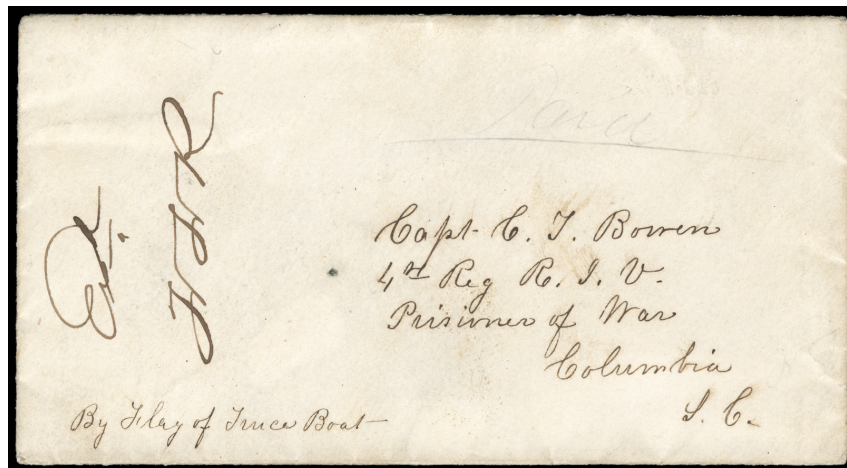 Capt. C. T. Bowen
4th Reg R. I. V.
Prisioner of War
Columbia
S. C.
By Flag of Truce Boat
Ex.